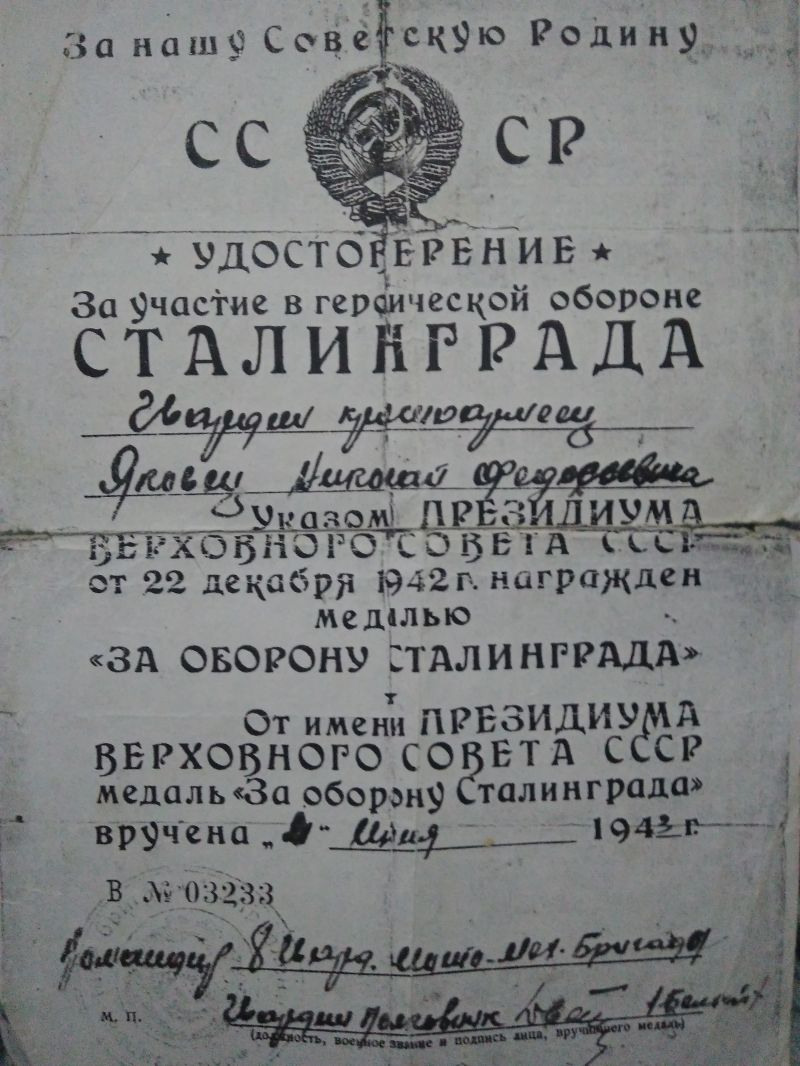 За нашу Советскую Родину
СССР
★ УДОСТОВЕРЕНИЕ ★
За участие в героической обороне
СТАЛИНГРАДА
Гвардии красноармеец
Яковец Николай Федосеевич
Указом ПРЕЗИДИУМА
ВЕРХОВНОГО СОВЕТА СССР
от 22 декабря 1942 г. награжден
медалью
«ЗА ОБОРОНУ СТАЛИНГРАДА»
От имени ПРЕЗИДИУМА
ВЕРХОВНОГО СОВЕТА СССР
медаль «За оборону Сталинграда»
вручена 1943 г.
В № 03233
Командир 8 Гвард. Мото-Мех. Бригады
м. п. Гвардии Полковник /Белый/
(должность, военное звание и подпись лица, вручившего медаль)